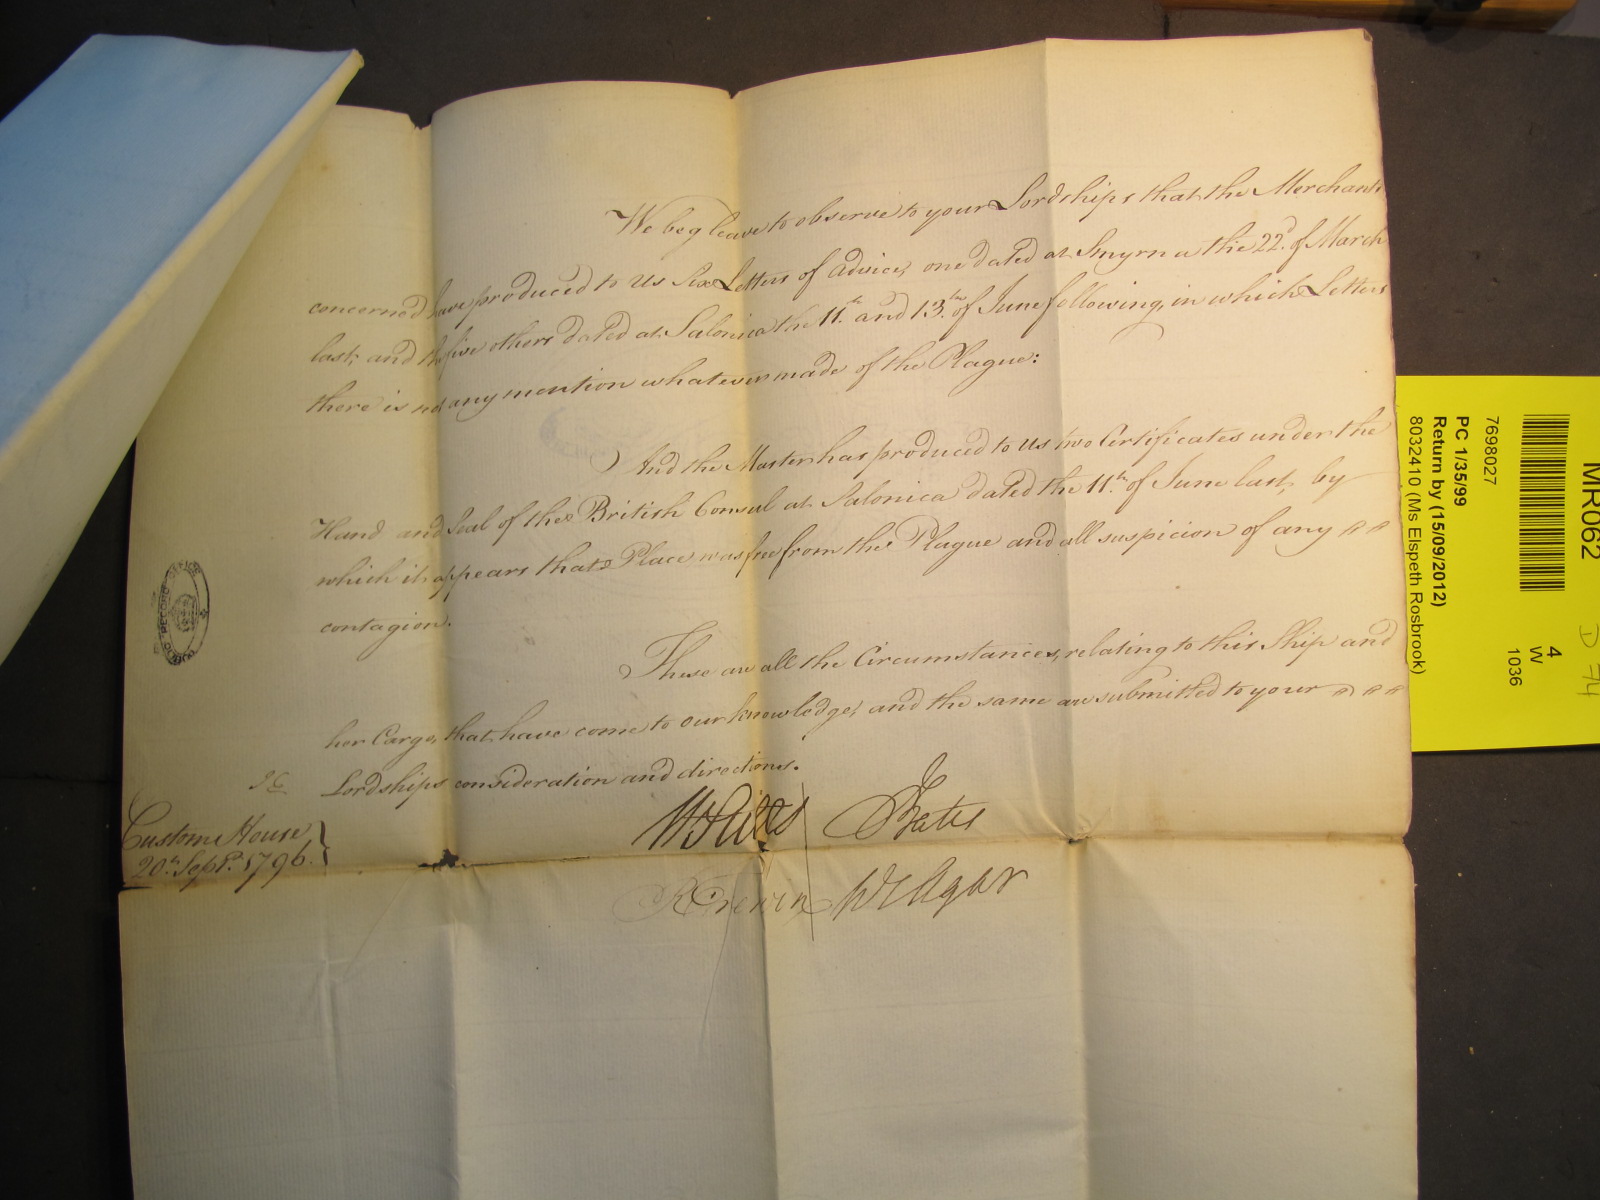 We beg leave to observe to your Lordships that the Merchants
concerned have produced to us Six Letters of Advice, one dated at Smyrna the 22d. of March
last, and the five others dated at Salonica the 11th. and 13th. of June following, in which Letters
there is not any mention whatever made of the Plague:
And the Master has produced to us two Certificates under the
Hand and Seal of the British Consul at Salonica dated the 11th. of June last, by
which it appears that Place was free from the Plague and all suspicion of any
contagion.
These are all the Circumstances, relating to this Ship and
her Cargo, that have come to our knowledge, and the same are submitted to your
Lordships consideration and directions.
Custom House
20th. Sept. 1796.
J Bates
R Frewin
W Agar
PUBLIC RECORD OFFICE
MR062
4
W
1036
7698027
PC 1/35/99
Return by (15/09/2012)
8032410 (Ms Elspeth Rosbrook)
D 74